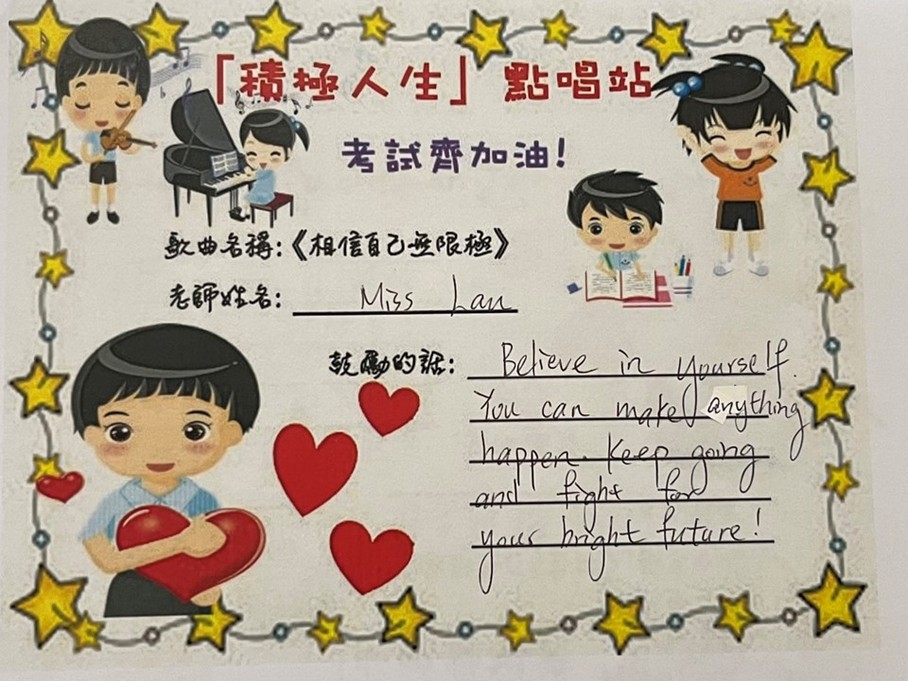 「積極人生」點唱站
考試齊加油!
歌曲名稱:《相信自己無限極》
老師姓名: Miss Lau
鼓勵的話: Believe in yourself.
You can make anything
happen. Keep going
and fight for
your bright future!